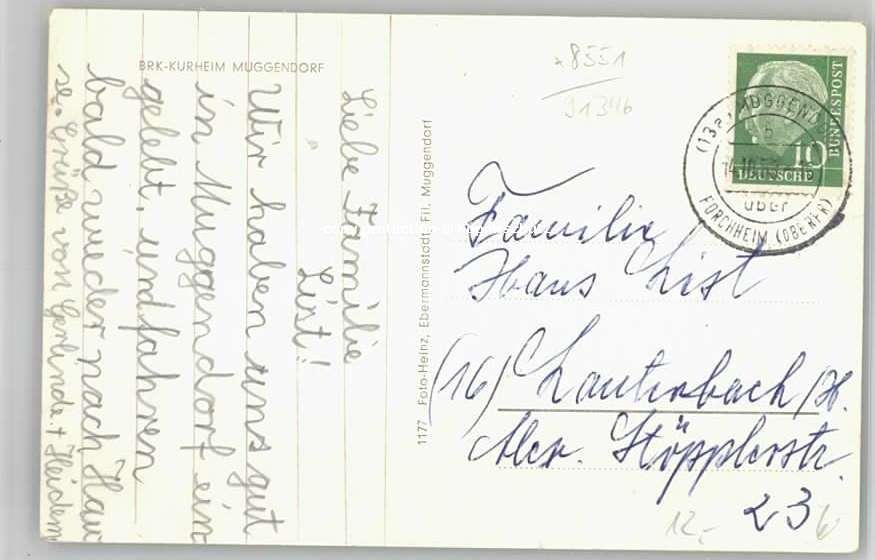 BRK-KURHEIM MUGGENDORF
Liebe Familie
List!
Wir haben uns gut
in Muggendorf ein
gelebt, und fahren
bald wieder nach Hau
se. Grüße von Gerlinde + Heidem
1177 Foto-Heinz, Ebermannstadt, Fil. Muggendorf
*8551
91346
DEUTSCHE
BUNDESPOST
10
(13a) MUGGEND
b
14.10.5
über
FORCHHEIM (OBERFR)
Familie
Hans List
(16) Lauterbach/H.
Alex. Stöpplerstr.
23
12,-